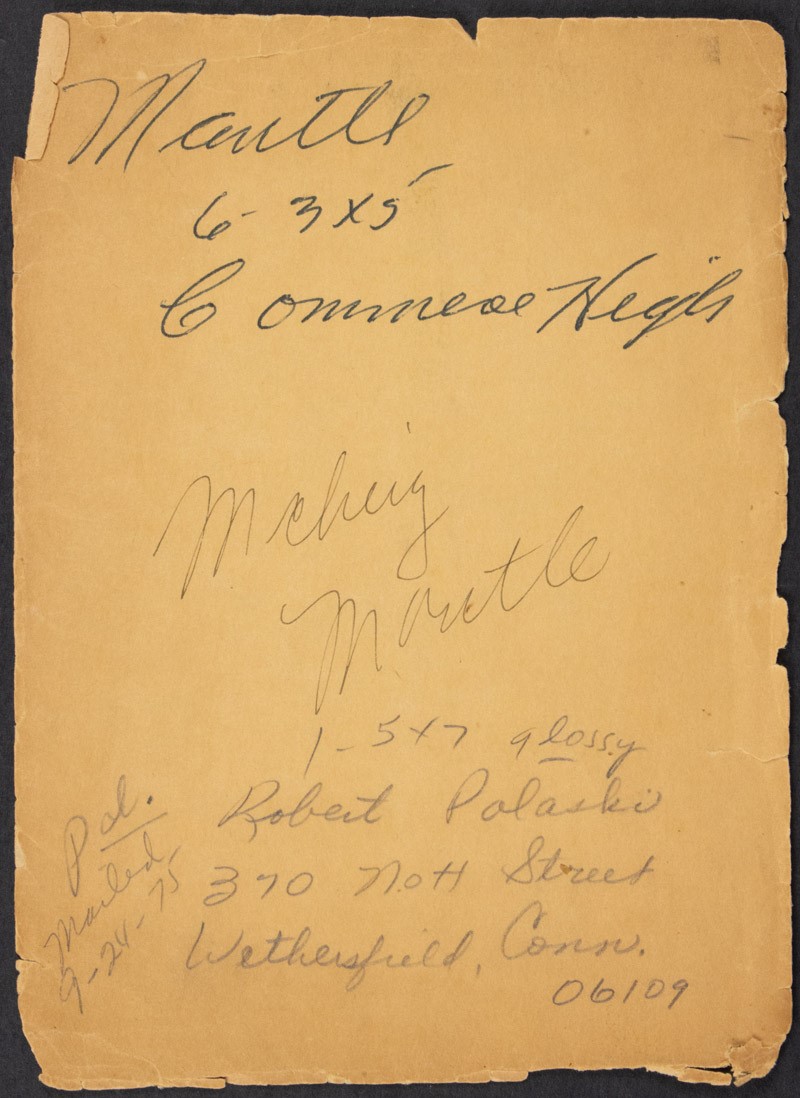 Mantle
6- 3x5
Commerce High
Mickey
Mantle
1-5x7 glossy
Robert Polaski
370 Nott Street
Wethersfield, Conn.
06109
Pd.
Mailed
9-24-75